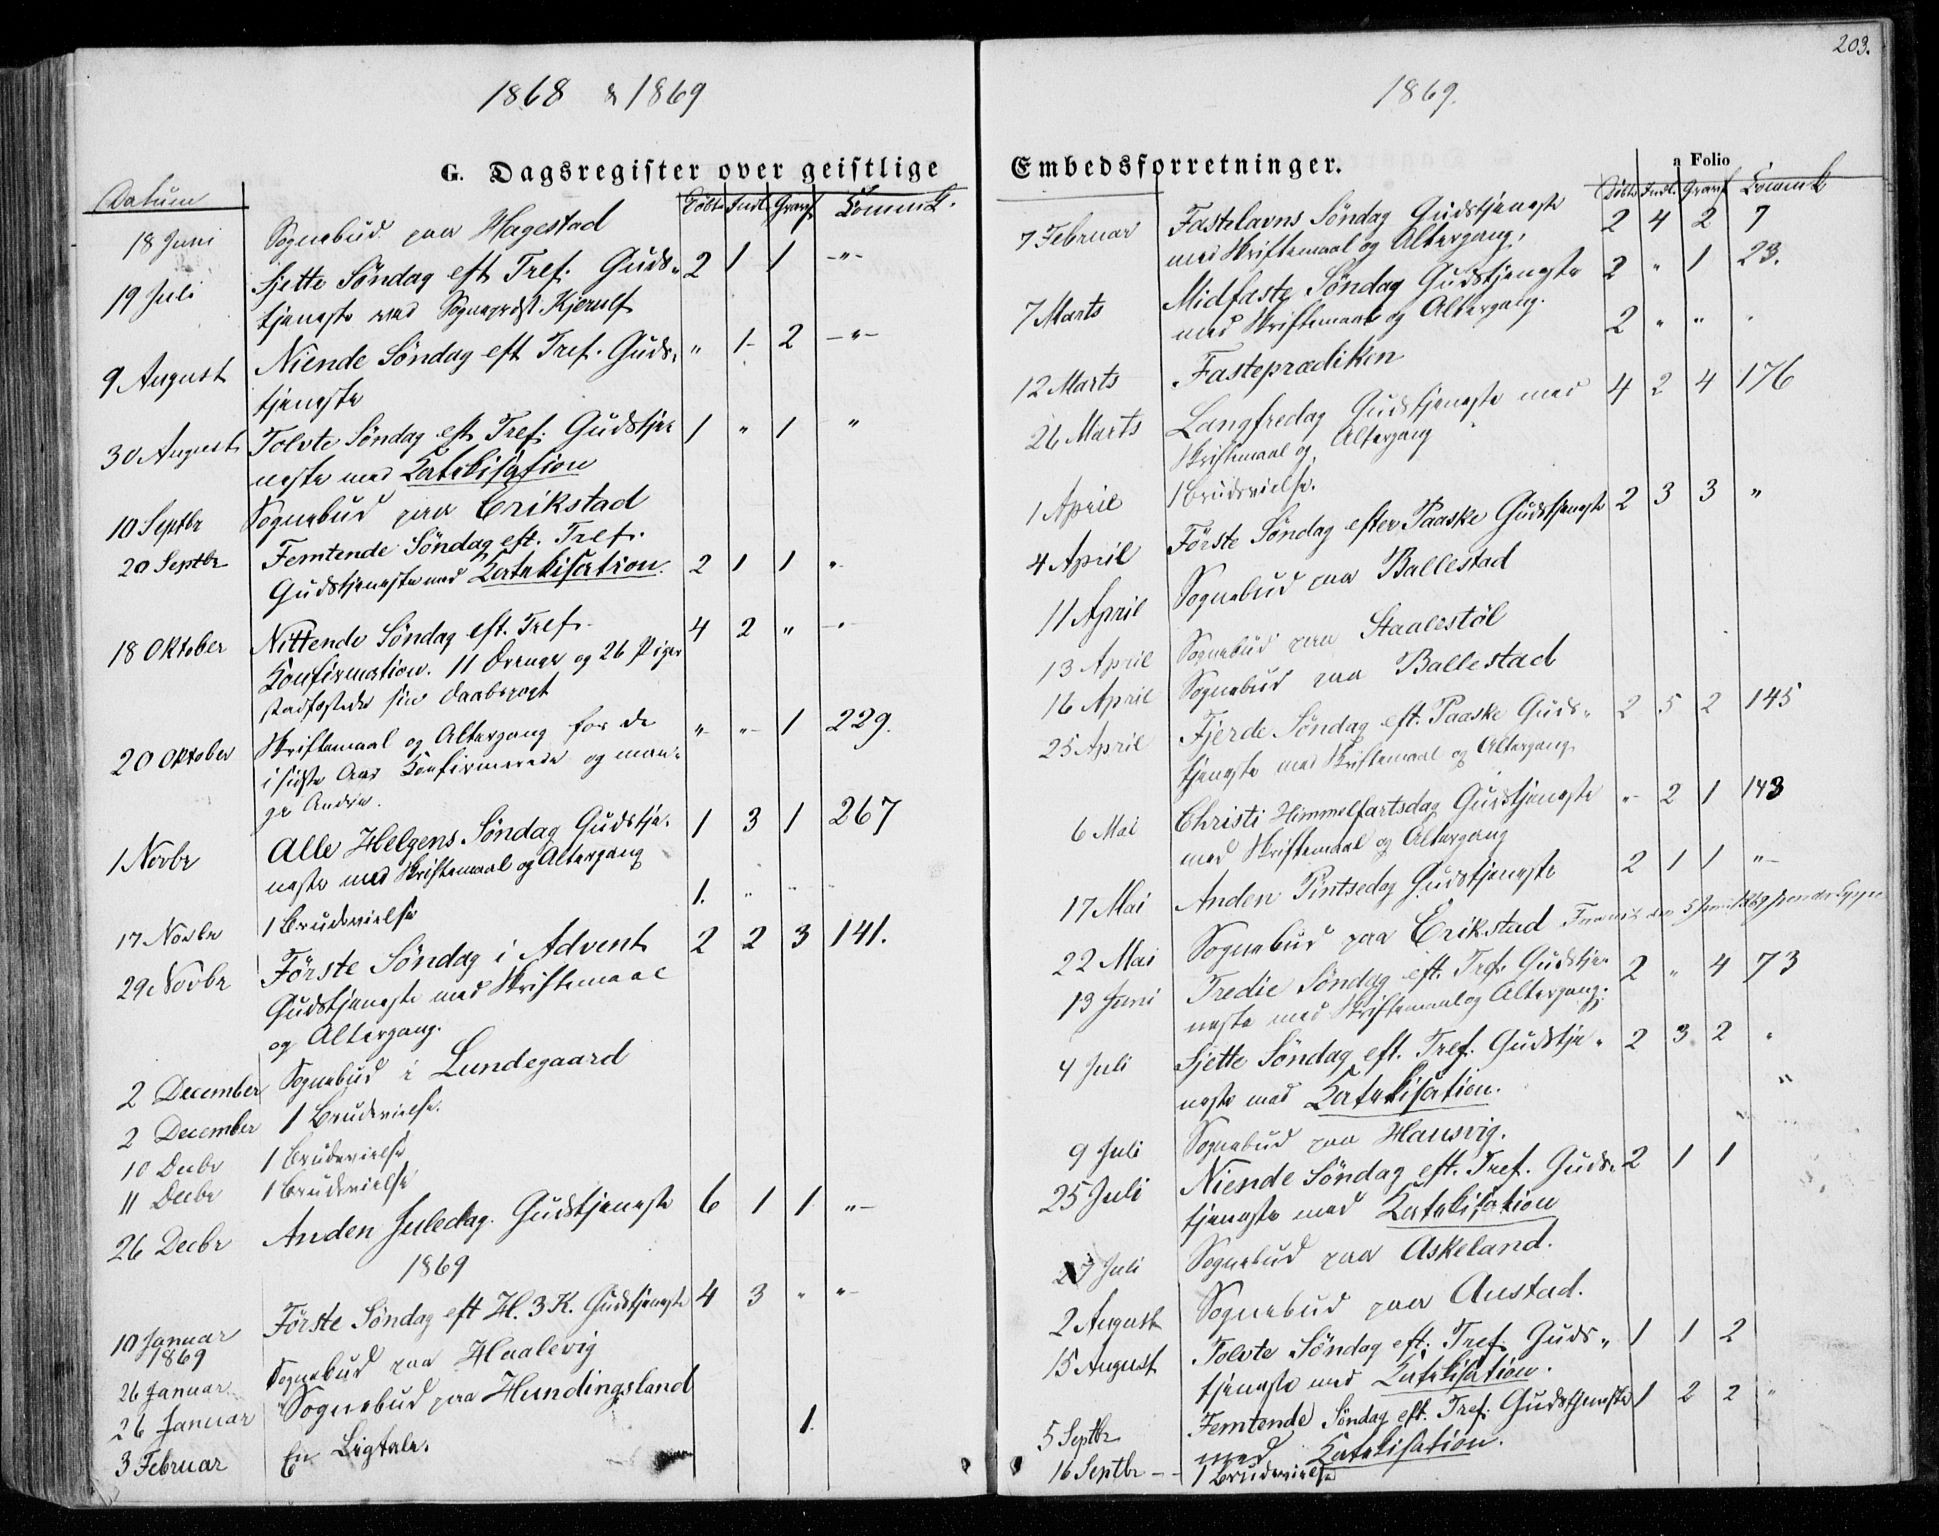 1868 & 1869
G. Dagsregister over geistlige
Datum Döbte Indl. Gravf. Commk.
18 Juni Sognebud paa Hagestad
19 Juli Sjette Söndag eft Tref. Guds- 2 1 1 -"-
tjeneste ved Sognepræst Kjerulf
9 August Niende Söndag eft Tref. Guds- " 1 2 -"-
tjeneste
30 August Tolvte Söndag eft Tref. Gudstje- 1 " 1 "
neste med Katekisation
10 Septbr Sognebud paa Erikstad
20 Septbr Femtende Söndag eft. Tref.
Gudstjeneste med Katekisation. 2 1 1 "
18 Oktober Nittende Söndag eft. Tref. 4 2 " -"
Konfirmation. 11 Drenge og 26 Piger
stadfæstede sin Daabspagt
20 Oktober Skriftemaal og Altergang for de " " 1 229.
i sidste Aar Konfirmerede og man-
ge Andre.
1 Novbr Alle Helgens Söndag Gudstje- 1 3 1 267
neste med Skriftemaal og Altergang
17 Novbr 1 Brudevielse 1. " " "
29 Novbr Förste Söndag i Advent 2 2 3 141.
Gudstjeneste med Skriftemaal
og Altergang.
2 December Sognebud i Lundegaard
2 December 1 Brudevielse.
10 Decbr 1 Brudevielse
11 Decbr 1 Brudevielse
26 Decbr Anden Juledag. Gudstjeneste 6 1 1 "-
1869
10 Januar Förste Söndag eft H. 3 K. Gudstjeneste 4 3 " "-
1869
26 Januar Sognebud paa Haalevig
26 Januar Sognebud paa Hundingsland
3 Februar En Ligtale. 1.
203.
1869.
Embedsforretninger.
a Folio
Döbte Indl. Gravf Commk
7 Februar Fastelavns Söndag Gudstjeneste 2 4 2 7
med Skriftemaal og Altergang.
7 Marts Midfaste Söndag Gudstjeneste 2 " 1 23.
med Skriftemaal og Altergang.
12 Marts Fasteprædiken 2 " " "
26 Marts Langfredag Gudstjeneste med 4 2 4 176
Skriftemaal og Altergang
1 April 1 Brudevielse.
4 April Förste Söndag efter Paaske Gudstjeneste 2 3 3 "
11 April Sognebud paa Ballestad
13 April Sognebud paa Staalestöl
16 April Sognebud paa Ballestad
25 April Fjerde Söndag eft. Paaske Guds- 2 5 2 145
tjeneste med Skriftemaal og Altergang.
6 Mai Christi Himmelfartsdag Gudstjeneste "- 2 1 143
med Skriftemaal og Altergang
17 Mai Anden Pintsedag Gudstjeneste 2 1 1 "-
22 Mai Sognebud paa Erikstad
13 Juni Tredie Söndag eft. Tref. Gudstje- 2 " 4 73
neste med Skriftemaal og Altergang.
4 Juli Sjette Söndag eft. Tref. Gudstje- 2 3 2 "
neste med Katekisation. "
9 Juli Sognebud paa Hausvig.
25 Juli Niende Söndag eft. Tref. Guds- 2 1 1
tjeneste med Katekisation
27 Juli Sognebud paa Askeland.
2 August Sognebud paa Austad.
15 August Tolvte Söndag eft. Tref. Guds- 1 1 2
tjeneste med Katekisation.
5 Septbr Femtende Söndag eft. Tref. Gudstjeneste 1 2 2 "
med Katekisation.
16 Septbr - - 1 Brudevielse